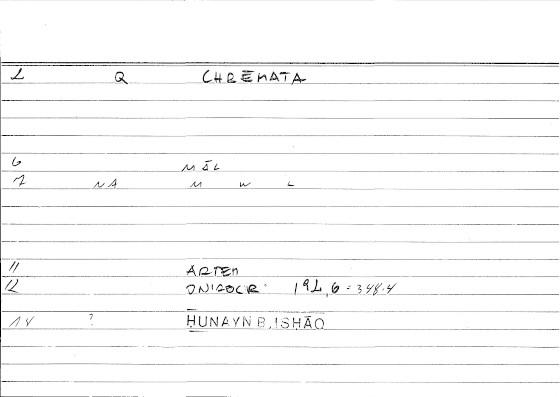 1 Q CHRĒMATA
6 MĀL
7 NA M W L
11 ARTEM
12 ONIROCR. 192,6 = 348.4
14 ? ḤUNAYN B. ISḤĀQ